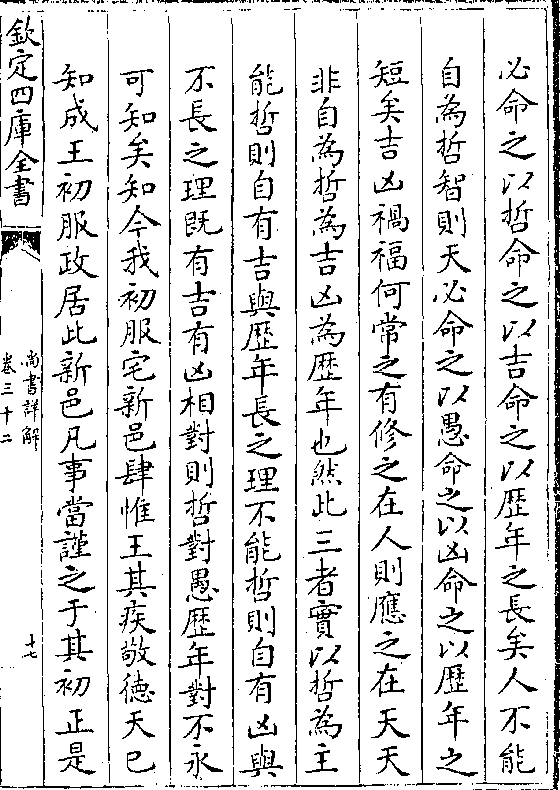 必命之以哲命之以吉命之以歴年之長矣人不能
自為哲智則天必命之以愚命之以凶命之以歴年之
短矣吉凶禍福何常之有修之在人則應之在天天
非自為哲為吉凶為歴年也然此三者實以哲為主
能哲則自有吉與歴年長之理不能哲則自有凶與
不長之理既有吉有凶相對則哲對愚歴年對不永
可知矣知今我初服宅新邑肆惟王其疾敬徳天已
知成王初服政居此新邑凡事當謹之于其初正是
欽定四庫全書
尚書詳解
卷三十二
十七